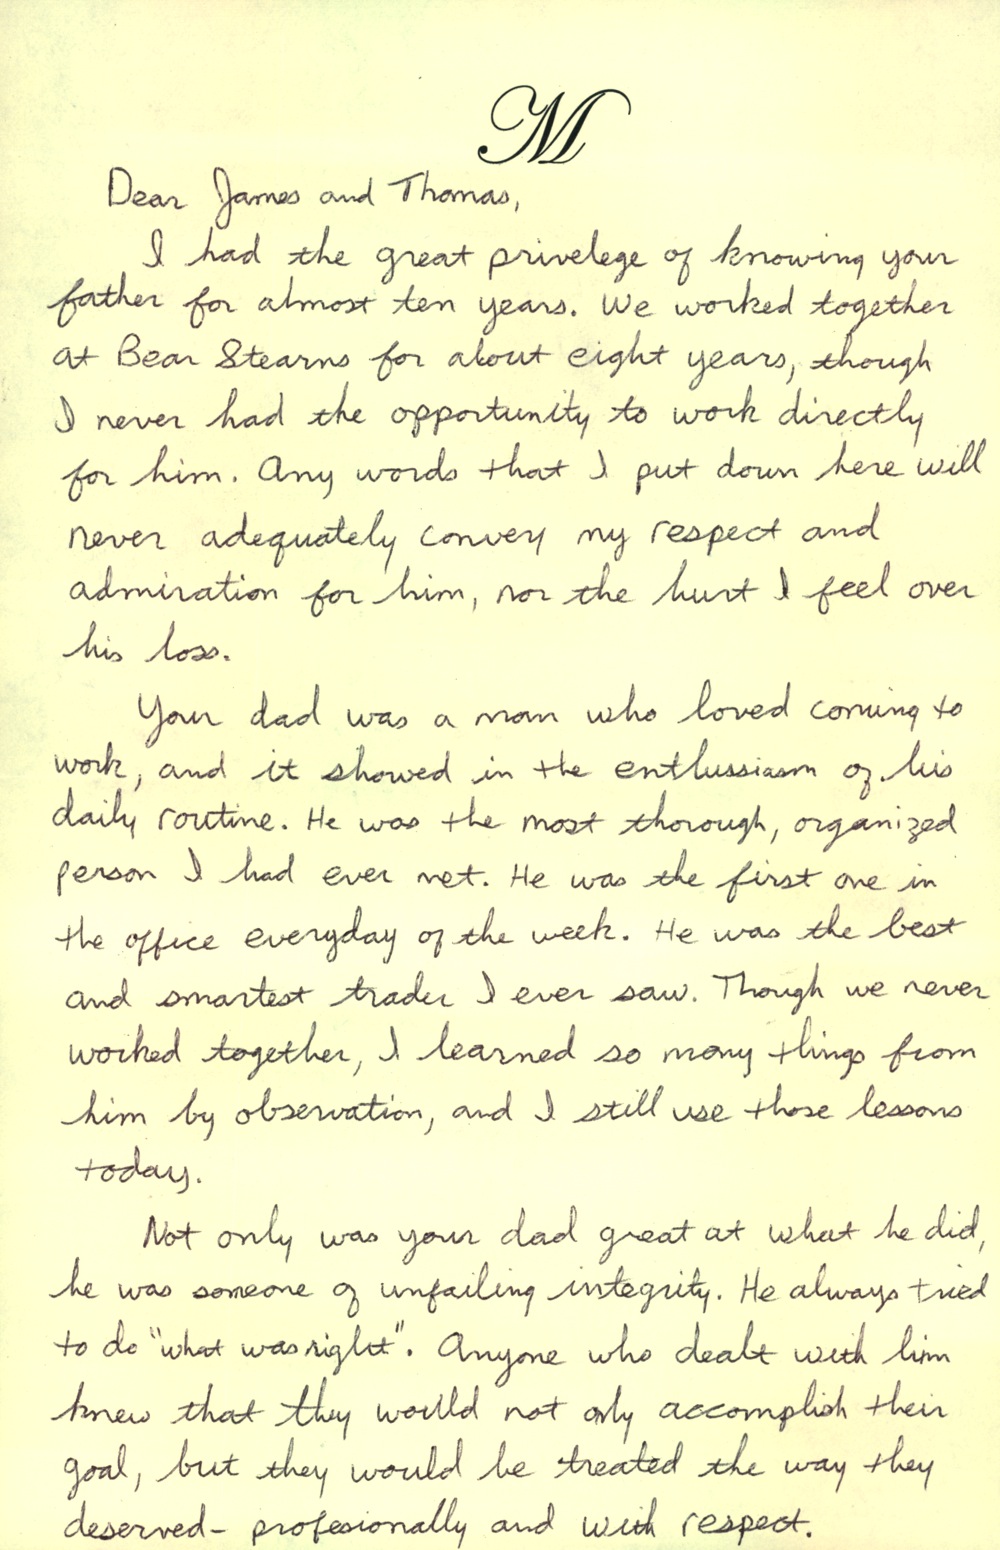 M
Dear James and Thomas,
I had the great privelege of knowing your
father for almost ten years. We worked together
at Bear Stearns for about eight years, though
I never had the opportunity to work directly
for him. Any words that I put down here will
never adequately convey my respect and
admiration for him, nor the hurt I feel over
his loss.
Your dad was a man who loved coming to
work, and it showed in the enthussiasm of his
daily routine. He was the most thorough, organized
person I had ever met. He was the first one in
the office everyday of the week. He was the best
and smartest trader I ever saw. Though we never
worked together, I learned so many things from
him by observation, and I still use those lessons
today.
Not only was your dad great at what he did,
he was someone of unfailing integrity. He always tried
to do "what was right". Anyone who dealt with him
knew that they would not only accomplish their
goal, but they would be treated the way they
deserved- profesionally and with respect.